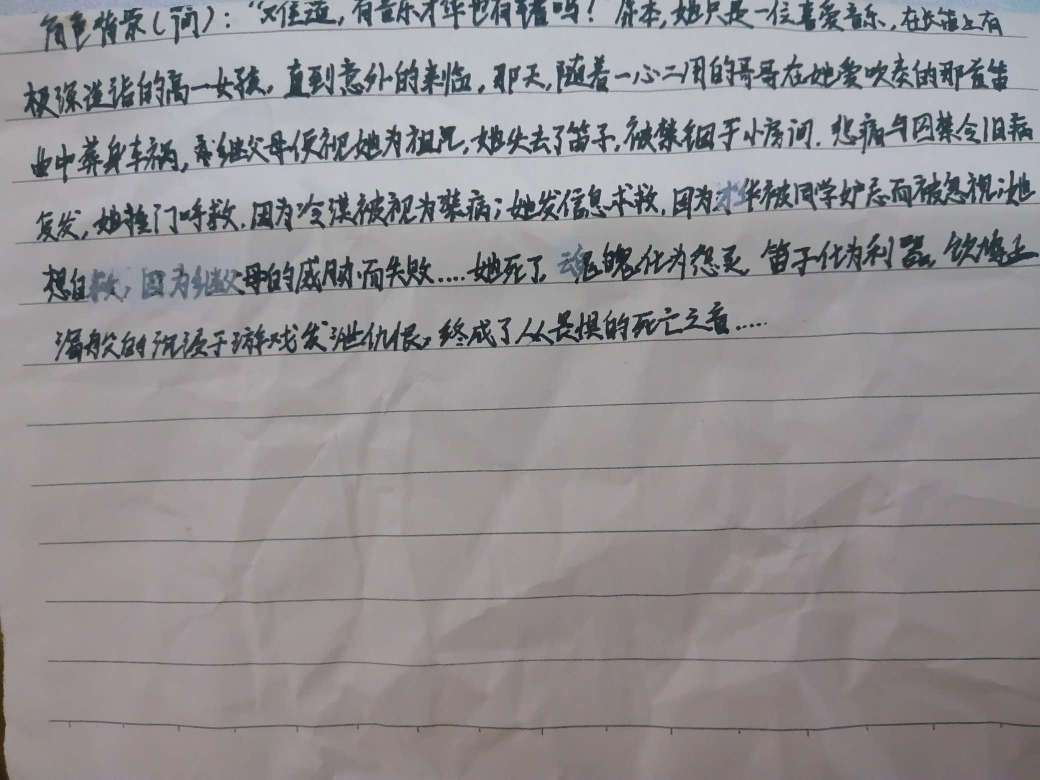 角色背景(简):“难道,有音乐才华也有错吗?”原本,她只是一位喜爱音乐,在长笛上有
极深造诣的高一女孩,直到意外的来临,那天,随着一心二用的哥哥在她爱吹奏的那首笛
曲中葬身车祸,继父母便视她为祖咒,她失去了笛子,被禁锢于小房间.悲痛与囚禁令旧病
复发,她捶门呼救,因为冷漠被视为装病;她发信息求救,因为才华被同学妒忌而被忽视;她
想自救,因为继父母的威胁而失败.....她死了,魂魄化为怨灵,笛子化为利器,
的沉浸于游戏发泄仇恨,终成了人畏惧的死亡之音.....